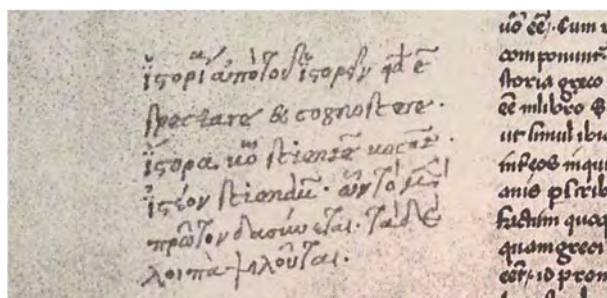 ἱστορία ἀπὸ τοῦ ἱστορεῖν qđ ē
spectare & cognoscere.
ἵστορα uō scientē uocāt.
ἰστέον sciendū. ὧν τὸ μὲν
πρῶτον δασύνεται. τὰ δὲ
λοιπὰ ψιλοῦται.
uō eē. Cum
componunt
storia greco
eē inlibro
ut simul
inteos inqui
anis
factum quoq
quam greci
eēt id pron